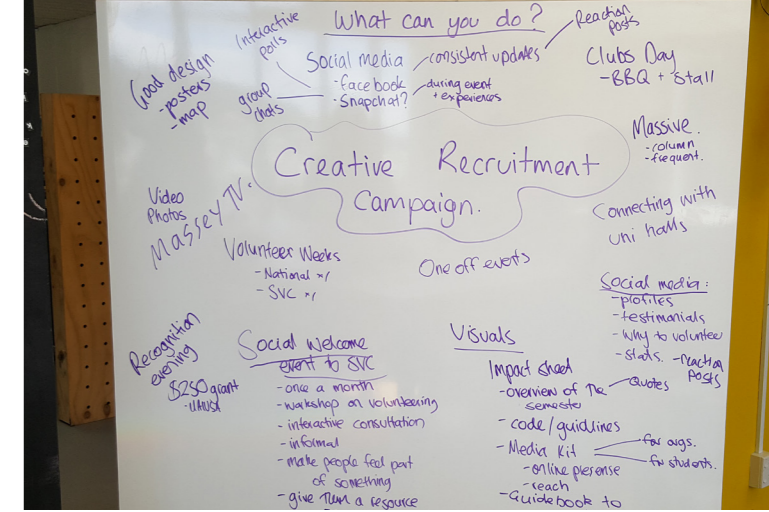 What can you do?
Interactive
polls
Reaction
posts
Good design
- posters
- map
Social media
- facebook
- Snapchat?
consistent updates
during event
+ experiences
group
chats
Clubs Day
- BBQ + Stall
Massive.
- column
- frequent.
Creative Recruitment
Campaign.
Video
Photos
Massey TV.
Connecting with
uni halls
Volunteer Weeks
- National
- SVC
One off events
Social media:
- profiles
- testimonials
- why to volunteer
- stats.
- reaction
posts
Recognition
evening
$250 grant
Social Welcome
event to SVC
- once a month
- workshop on volunteering
- interactive consultation
- informal
- make people feel part
of something
- give them a resource
Visuals
Impact sheet
- overview of the
semester
Quotes
- code/guidlines
- Media Kit
for orgs.
for students.
- online presense
- reach
- Guidebook to